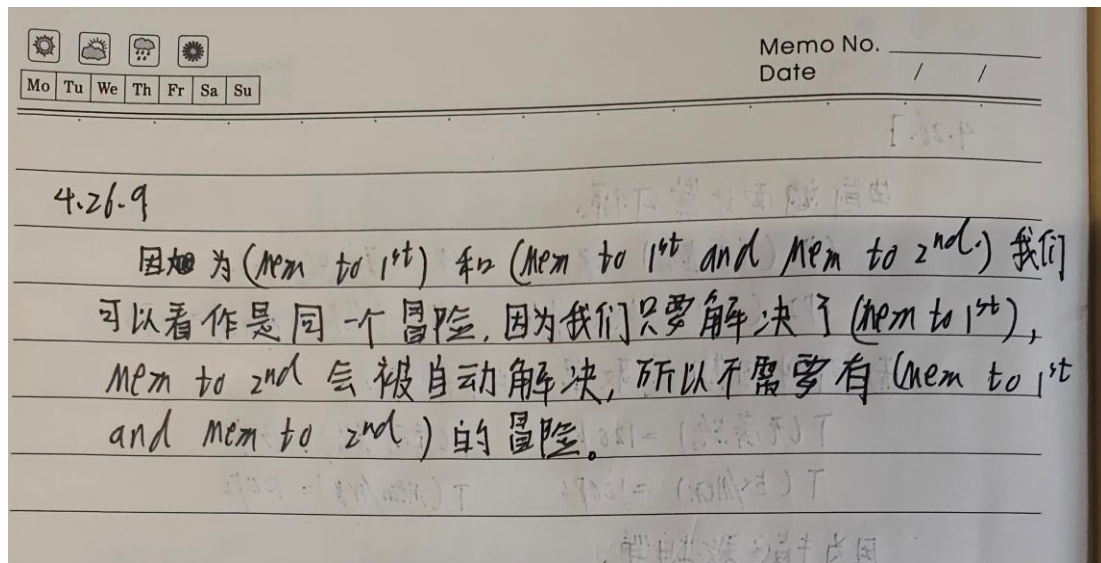 Memo No.
Mo Tu We Th Fr Sa Su
Date / /
4.26.9
因为 (Mem to 1st) 和 (Mem to 1st and Mem to 2nd.) 我们
可以看作是同一个冒险,因为我们只要解决了 (Mem to 1st),
Mem to 2nd 会被自动解决,所以不需要有 (Mem to 1st
and Mem to 2nd) 的冒险。